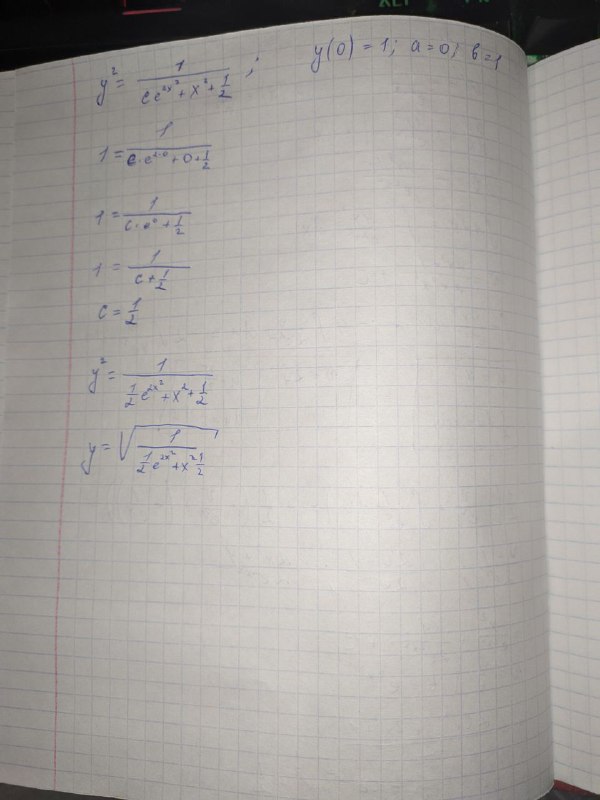 y² = 1/(ce^{2x²} + x² + 1/2) ; y(0) = 1; a=0; b=1
1 = 1/(c·e^{2·0} + 0 + 1/2)
1 = 1/(c·e⁰ + 1/2)
1 = 1/(c + 1/2)
c = 1/2
y² = 1/(1/2 e^{2x²} + x² + 1/2)
y = √(1/(1/2 e^{2x²} + x² 1/2))